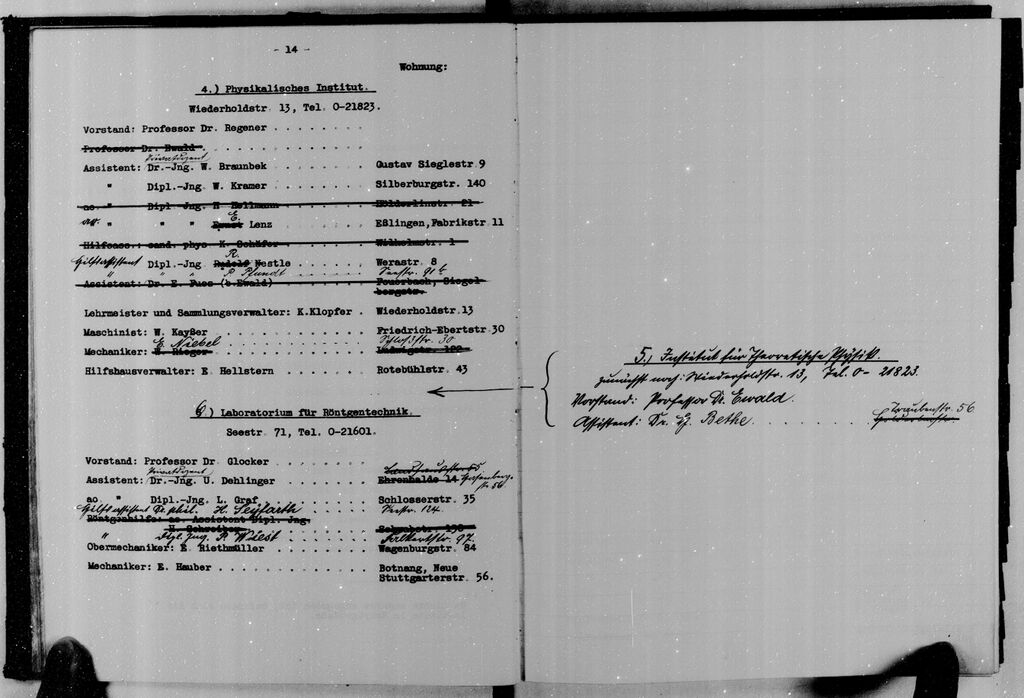 - 14 -
Wohnung:
4.) Physikalisches Institut.
Wiederholdstr. 13, Tel. 0-21823.
Vorstand: Professor Dr. Regener . . . . . . . .
Professor Dr. Ewald. . . . . . . . . . . . .
Privatdozent
Assistent: Dr.-Jng. W. Braunbek . . . . . . . . Gustav Sieglestr. 9
" Dipl.-Jng. W. Kramer . . . . . . . . Silberburgstr. 140
ao. " Dipl.-Jng. H. Hellmann . . . . . . . Hölderlinstr. 21
E.
ao. " " " Ernst Lenz . . . . . . . . Eßlingen, Fabrikstr. 11
Hilfsass.: cand. phys. K. Schäfer . . . . . . Wilhelmstr. 1
R.
Hilfsassistent Dipl.-Jng. Rudolf Nestle . . . . . . . Werastr. 8
" " " P. Pfundt Seestr. 91 b
Assistent: Dr. E. Fues (b.Ewald) . . . . . . . Feuerbach, Siegel-
bergstr.
Lehrmeister und Sammlungsverwalter: K.Klopfer . Wiederholdstr.13
Maschinist: W. Kayßer . . . . . . . . . . . . Friedrich-Ebertstr. 30
E. Niebel Schloßstr. 30
Mechaniker: W. Rieger. . . . . . . . . . . . . Ludwigstr.
Hilfshausverwalter: E. Hellstern . . . . . . . Rotebühlstr. 43
6.) Laboratorium für Röntgentechnik.
Seestr. 71, Tel. 0-21601.
Vorstand: Professor Dr. Glocker . . . . . . . .
Privatdozent
Assistent: Dr.-Jng. U. Dehlinger . . . . . . . Ehrenhalde 14 Hasenberg-
str. 56
ao. " Dipl.-Jng. L. Graf. . . . . . . . . Schlosserstr. 35
Hilfsassistent Dr. phil. H. Seyfarth Seestr. 124.
Röntgenhilfs: ao. Assistent Dipl. Jng.
H. Schreiber. . . . . . . . . Schwabstr.
" Dipl. Jng. P. Wiest Falkertstr. 97.
Obermechaniker: E. Riethmüller . . . . . . . . Wagenburgstr. 84
Mechaniker: E. Hauber . . . . . . . . . . . . Botnang, Neue
Stuttgarterstr. 56.
5.) Institut für Theoretische Physik.
zunächst noch: Wiederholdstr. 13, Tel. 0-21823.
Vorstand: Professor Dr. Ewald.
Traubenstr. 56
Assistent: Dr. H. Bethe. . . . . . . . . . . .